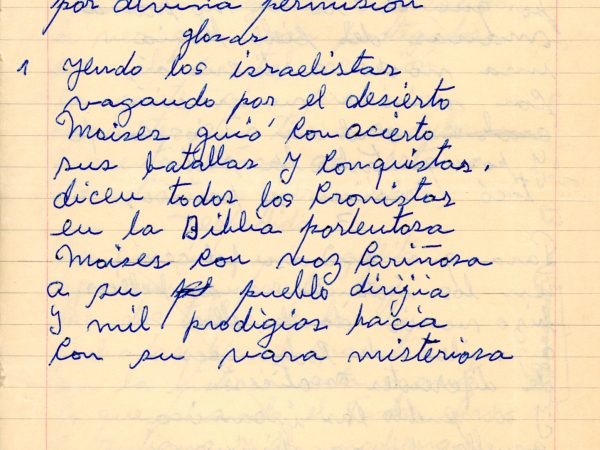 por divina permision
glosas
1 Yendo los israelistas
vagando por el desierto
Moises guió con acierto
sus batallas y Conquistas.
dicen todos los Cronistas
en la Biblia portentosa
Moises Con voz Cariñosa
a su pueblo dirijia
y mil prodigios hacia
Con su vara misteriosa